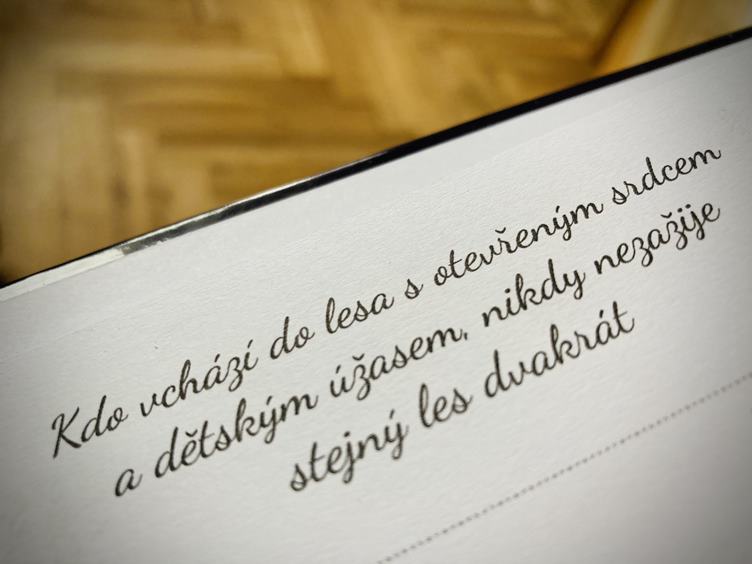 Kdo vchází do lesa s otevřeným srdcem
a dětským úžasem, nikdy nezažije
stejný les dvakrát